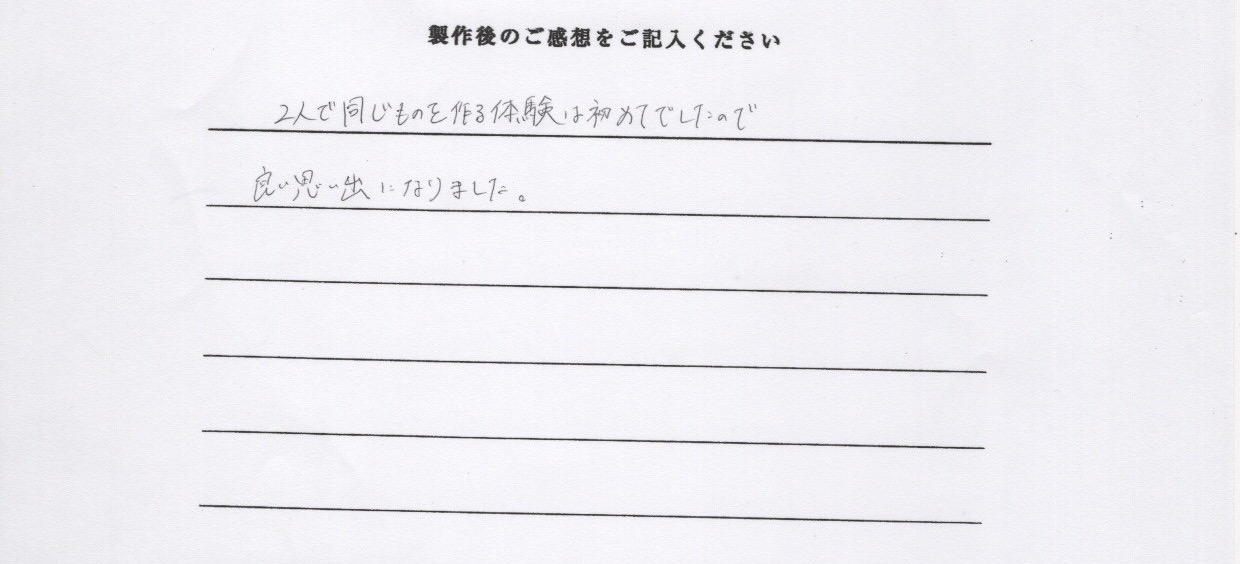 製作後のご感想をご記入ください
2人で同じものを作る体験は初めてでしたので
良い思い出になりました。